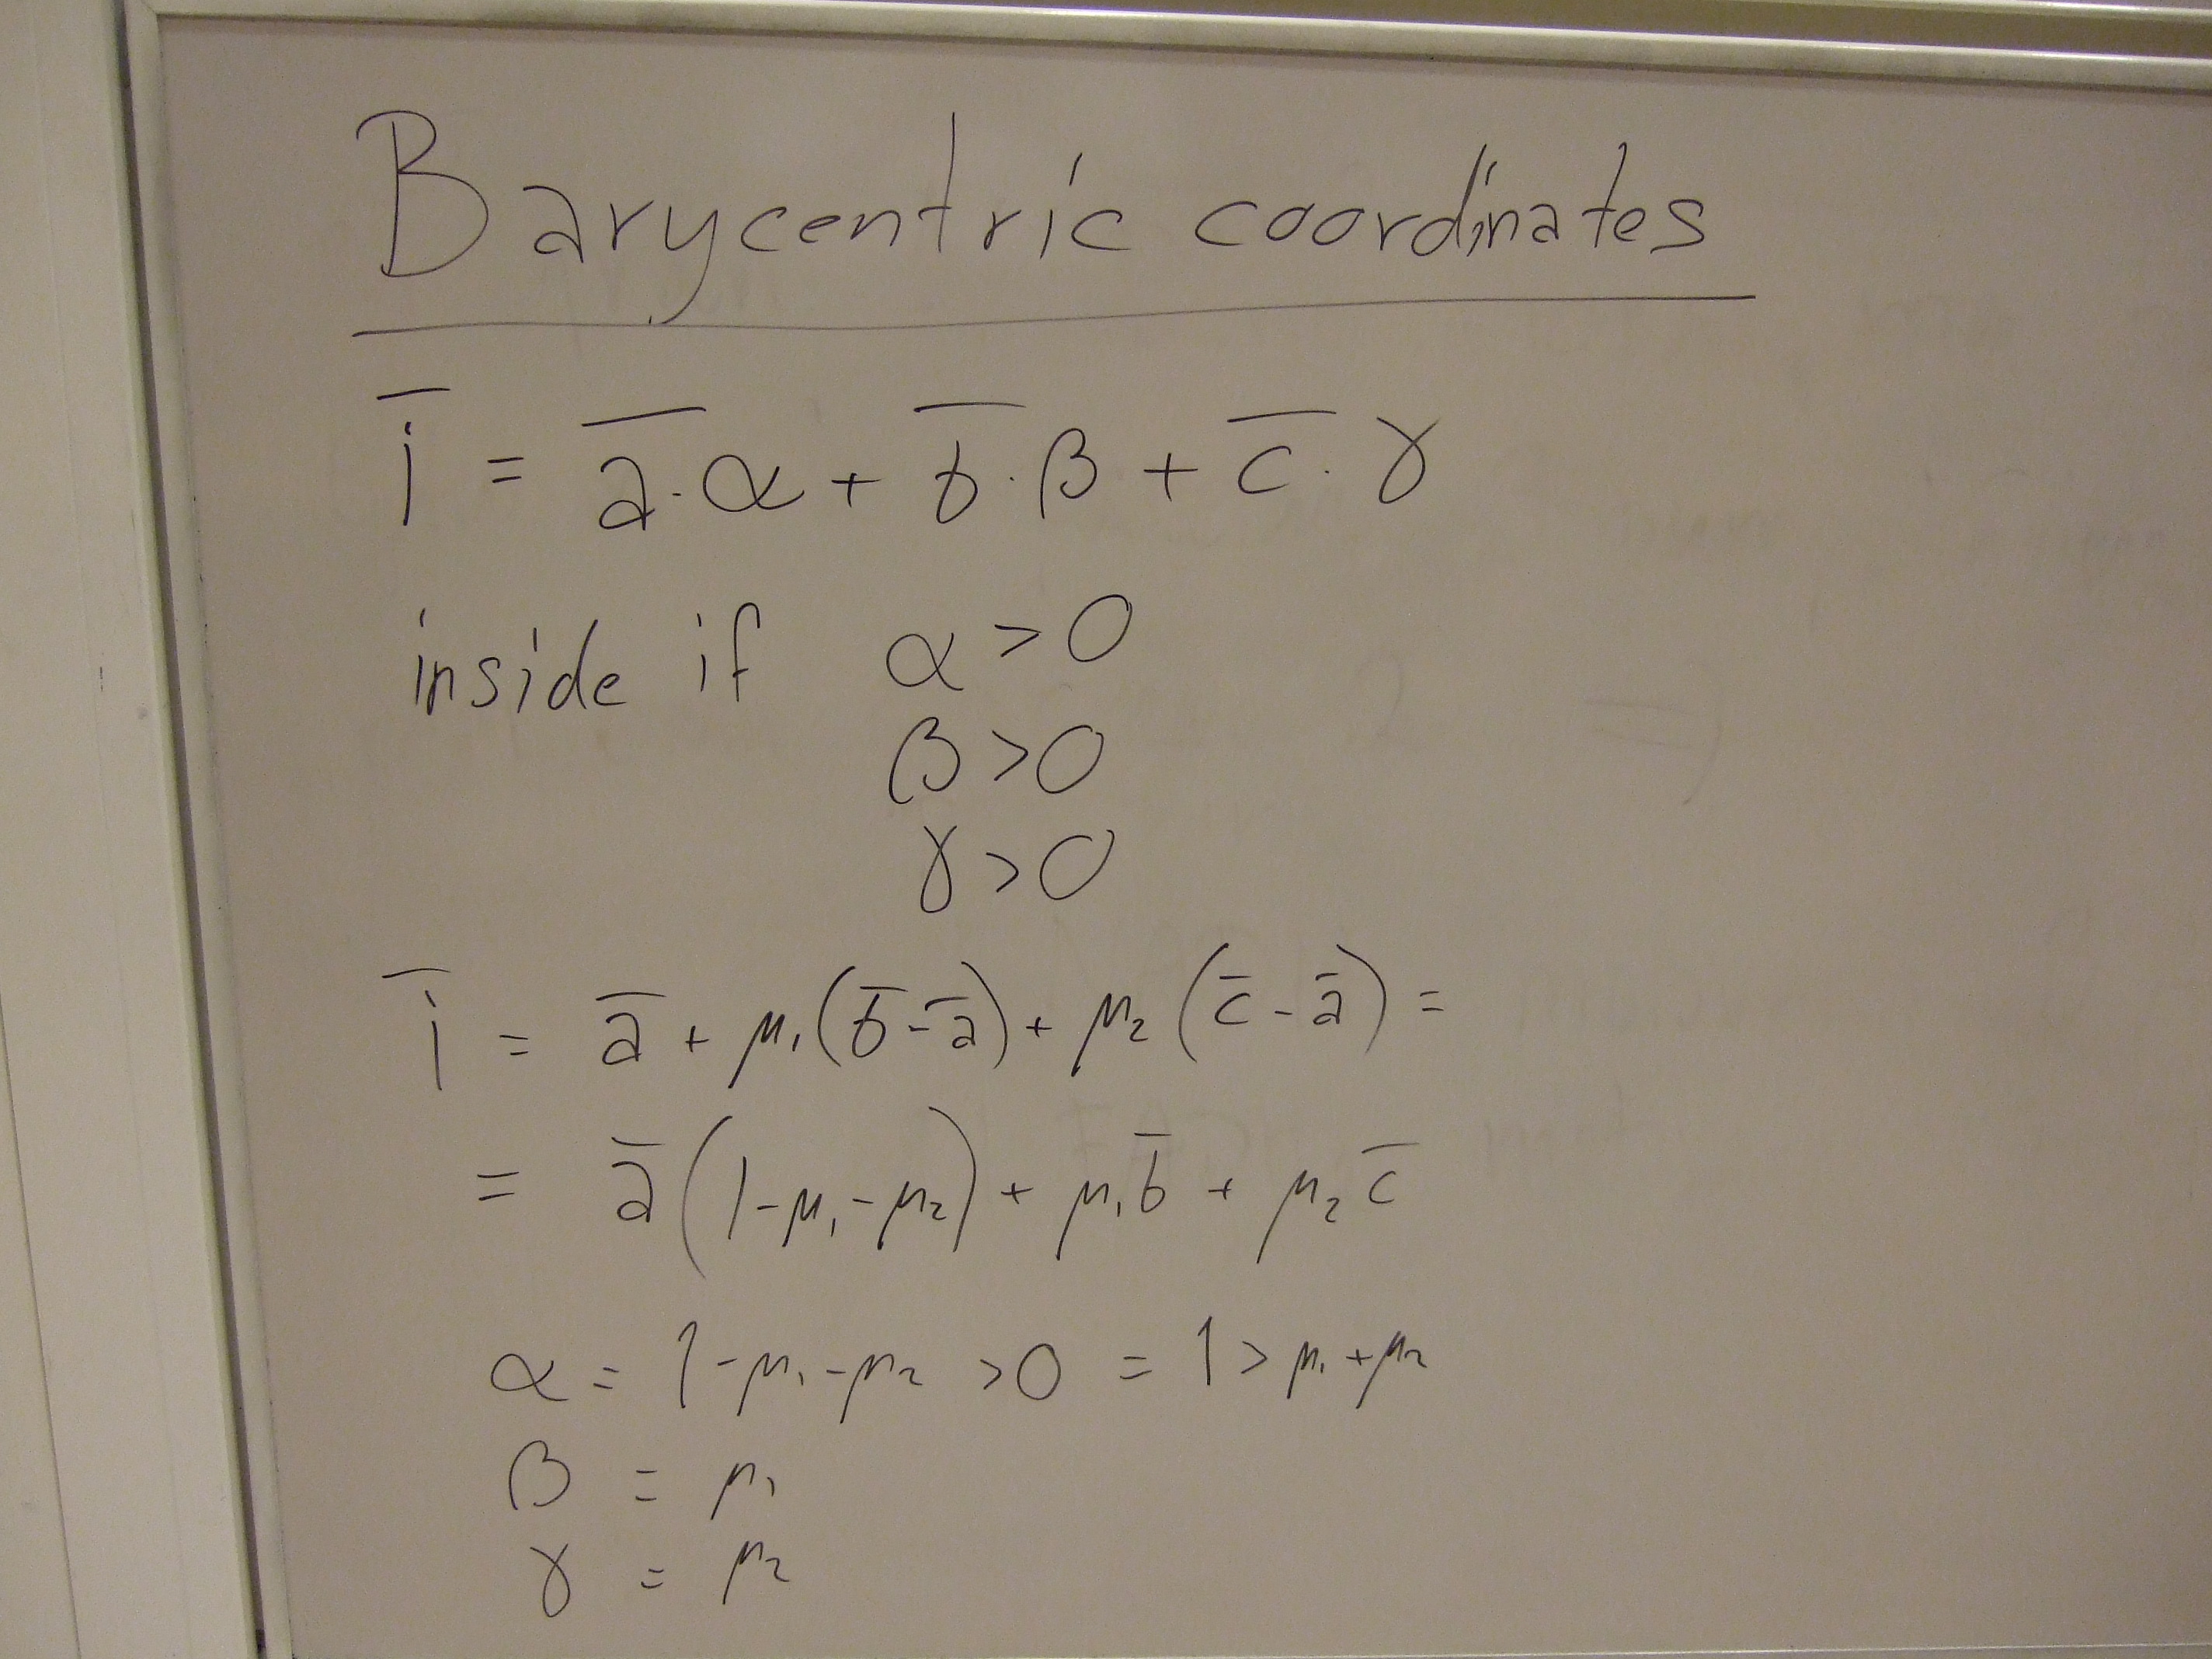 Barycentric coordinates
i̅ = a̅·α + b̅·β + c̅·γ
inside if α > 0
β > 0
γ > 0
i̅ = a̅ + μ₁(b̅-a̅) + μ₂(c̅-a̅) =
= a̅(1-μ₁-μ₂) + μ₁b̅ + μ₂c̅
α = 1-μ₁-μ₂ >0 = 1 > μ₁+μ₂
β = μ₁
γ = μ₂